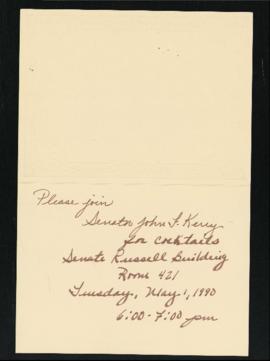 Please join
Senator John F. Kerry
for cocktails
Senate Russell Building
Room 421
Tuesday, May 1, 1990
6:00-7:00 pm